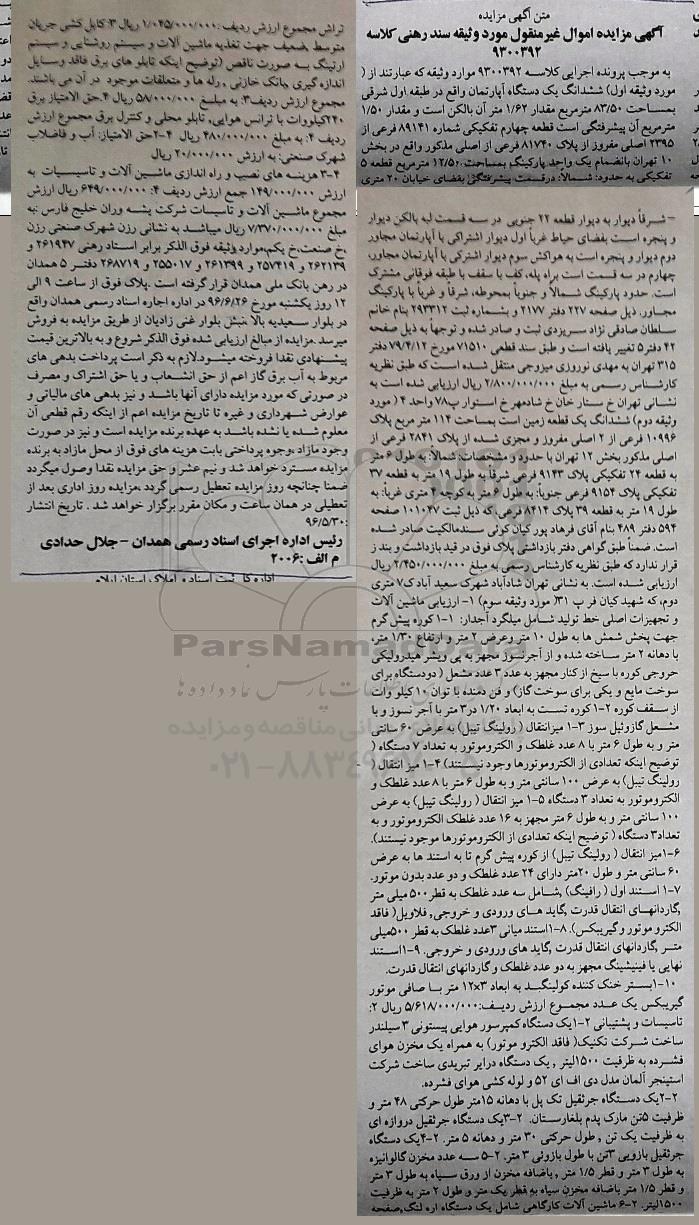 متن آگهی مزایده
آگهی مزایده اموال غیرمنقول مورد وثیقه سند رهنی کلاسه
۹۳۰۰۳۹۲
به موجب پرونده اجرایی کلاسه ۹۳۰۰۳۹۲ موارد وثیقه که عبارتند از (
مورد وثیقه اول) ششدانگ یک دستگاه آپارتمان واقع در طبقه اول شرقی
بمساحت ۸۳/۵۰ مترمربع مقدار ۱/۶۲ متر آن بالکن است و مقدار ۱/۵۰
مترمربع آن پیشرفتگی است قطعه چهارم تفکیکی شماره ۸۹۱۴۱ فرعی از
۲۳۹۵ اصلی مفروز از پلاک ۸۱۷۴۰ فرعی از اصلی مذکور واقع در بخش
۱۰ تهران بانضمام یک واحد پارکینگ بمساحت ۱۲/۵۰ مترمربع قطعه ۵
تفکیکی به حدود: شمالاً: درقسمت پیشرفتگی بفضای خیابان ۲۰ متری
- شرقاً دیوار به دیوار قطعه ۲۲ جنوبی در سه قسمت لبه بالکن دیوار
و پنجره است بفضای حیاط غرباً اول دیوار اشتراکی با آپارتمان مجاور
دوم دیوار و پنجره است به هواکش سوم دیوار اشترکی با آپارتمان مجاور،
چهارم در سه قسمت است براه پله، کف با سقف با طبقه فوقانی مشترک
است. حدود پارکینگ شمالاً و جنوباً بمحوطه، شرقاً و غرباً با پارکینگ
مجاور، ذیل صفحه ۲۲۷ دفتر ۲۱۷۷ و بشماره ثبت ۲۹۳۳۱۲ بنام خانم
سلطان صادقی نژاد سریزدی ثبت و صادر شده و توجهاً به ذیل صفحه
۴۲ دفتر۵ تغییر یافته است و طبق سند قطعی ۷۱۵۱۰ مورخ ۷۹/۴/۱۲ دفتر
۳۱۵ تهران به مهدی نوروزی میزوجی منتقل شده است که طبق نظریه
کارشناس رسمی به مبلغ ۲/۸۰۰/۰۰۰/۰۰۰ ریال ارزیابی شده است به
نشانی تهران خ ستار خان خ شادمهر خ استوار پ۷۸ واحد ۴ ( مورد
وثیقه دوم) ششدانگ یک قطعه زمین است بمساحت ۱۱۴ متر مربع پلاک
۱۰۹۹۶ فرعی از ۲ اصلی مفروز و مجزی شده از پلاک ۲۸۴۱ فرعی از
اصلی مذکور بخش ۱۲ تهران با حدود و مشخصات: شمالاً: به طول ۶ متر
به قطعه ۲۴ تفکیکی پلاک ۹۱۴۳ فرعی شرقاً به طول ۱۹ متر به قطعه ۳۷
تفکیکی پلاک ۹۱۵۴ فرعی جنوباً: به طول ۶ متر به کوچه ۴ متری غرباً: به
طول ۱۹ متر به قطعه ۳۹ پلاک ۸۴۱۴ فرعی که ذیل ثبت ۱۰۱۰۴۷ صفحه
۵۹۴ دفتر ۴۸۹ بنام آقای فرهاد پور کیان کوئی سندمالکیت صادر شده
است. ضمناً طبق گواهی دفتر بازداشتی پلاک فوق در قید بازداشت و بند ز
قرار ندارد که طبق نظریه کارشناس رسمی به مبلغ ۲/۴۵۰/۰۰۰/۰۰۰ ریال
ارزیابی شده است. به نشانی تهران شادآباد شهرک سعید آبادک۷ متری
دوم، که شهید کیان فر پ ۳۱( مورد وثیقه سوم) ۱- ارزیابی ماشین آلات
و تجهیزات اصلی خط تولید شامل میلگرد آجدار: ۱-۱ کوره پیش گرم
جهت پخش شمش ها به طول ۱۰ متر وعرض ۲ متر و ارتفاع ۱/۳۰ متر،
با دهانه ۲ متر ساخته شده و از آجرنسوز مجهز به پی ویشر هیدرولیکی
خروجی کوره با سیخ از کنار مجهز به عدد ۳ عدد مشعل ( دودستگاه برای
سوخت مایع و یکی برای سوخت گاز) و فن دمنده با توان ۱۰ کیلو وات
از سقف کوره ۲-۱ کوره تست به ابعاد ۱/۲۰ در۳ متر با آجر نسوز و با
مشعل گازوئیل سوز ۳-۱ میزانتقال ( رولینگ تیبل) به عرض ۶۰ سانتی
متر و به طول ۶ متر با ۸ عدد غلطک و الکتروموتور به تعداد ۷ دستگاه (
توضیح اینکه تعدادی از الکتروموتورها وجود نیستند) ۴-۱ میز انتقال (
رولینگ تیبل) به عرض ۱۰۰ سانتی متر و به طول ۶ متر با ۸ عدد غلطک و
الکتروموتور به تعداد ۳ دستگاه ۵-۱ میز انتقال ( رولینگ تیبل) به عرض
۱۰۰ سانتی متر و به طول ۶ متر مجهز به ۱۶ عدد غلطک الکتروموتور و به
تعداد۳ دستگاه ( توضیح اینکه تعدادی از الکتروموتورها موجود نیستند).
۶-۱میز انتقال ( رولینگ تیبل) از کوره پیش گرم تا به استند ها به عرض
۶۰ سانتی متر و طول ۲۰متر دارای ۲۴ عدد غلطک و دو عدد بدون موتور.
۷-۱ استند اول ( رافینگ) ,شامل سه عدد غلطک به قطر۵۰۰ میلی متر
,گاردانهای انتقال قدرت ,گاید های ورودی و خروجی, فلاویل( فاقد
الکترو موتور وگیربکس). ۸-۱استند میانی ۳عدد غلطک به قطر ۵۰۰میلی
متر ,گاردانهای انتقال قدرت ,گاید های ورودی و خروجی. ۹-۱استند
نهایی یا فینیشینگ مجهز به دو عدد غلطک و گاردانهای انتقال قدرت.
۱۰-۱بستر خنک کننده کولینگبد به ابعاد ۱۲×۳ متر با صافی موتور
گیربکس یک عدد مجموع ارزش ردیف:۵/۶۱۸/۰۰۰/۰۰۰ ریال ۲:
تاسیسات و پشتیبانی ۲-۱یک دستگاه کمپرسور هوایی پیستونی ۳ سیلندر
ساخت شرکت تکنیک( فاقد الکترو موتور) به همراه یک مخزن هوای
فشرده به ظرفیت ۱۵۰۰لیتر , یک دستگاه درایر تبریدی ساخت شرکت
استینجر آلمان مدل دی اف ای ۵۲ و لوله کشی هوای فشرده.
۲-۲یک دستگاه جرثقیل تک پل با دهانه ۱۵متر طول حرکتی ۴۸ متر و
ظرفیت ۵تن مارک پدم بلغارستان. ۲-۳یک دستگاه جرثقیل دروازه ای
به ظرفیت یک تن , طول حرکتی ۳۰ متر و دهانه ۵ متر. ۲-۴یک دستگاه
جرثقیل بازویی ۳تن با طول بازوئی ۳ متر. ۲-۵ سه عدد مخزن گالوانیزه
به طول ۳ متر و قطر ۱/۵ متر , باضافه مخزن از ورق سیاه به طول ۳ متر
و قطر ۱/۵ متر باضافه مخزن سیاه به قطر یک متر و طول ۲ متر به ظرفیت
۱۵۰۰لیتر. ۲-۶ ماشین آلات کارگاهی شامل یک دستگاه اره لنگ,صفحه
تراش مجموع ارزش ردیف :۱/۰۴۵/۰۰۰/۰۰۰ ریال ۳: کابل کشی جریان
متوسط ,ضعیف جهت تغذیه ماشین آلات و سیستم روشنایی و سیستم
ارتینگ به صورت ناقص (توضیح اینکه تابلو های برق فاقد وسایل
اندازه گیری ,بانک خازنی , رله ها و متعلقات موجود در آن می باشند.
مجموع ارزش ردیف۳: به مبلغ ۵۸/۰۰۰/۰۰۰ ریال ۴.حق الامتیاز برق
۲۴۰کیلووات با ترانس هوایی، تابلو محلی و کنترل برق مجموع ارزش
ردیف ۴: به مبلغ ۴۸۰/۰۰۰/۰۰۰ ریال ۴-۲حق الامتیاز: آب و فاضلاب
شهرک صنعتی: به ارزش ۲۰/۰۰۰/۰۰۰ ریال
۴-۳ هزینه های نصب و راه اندازی ماشین آلات و تاسیسات به
ارزش ۱۴۹/۰۰۰/۰۰۰ جمع ارزش ردیف ۴: ۶۴۹/۰۰۰/۰۰۰ ریال ارزش
مجموع ماشین آلات و تاسیسات شرکت پشه وران خلیج فارس :به
مبلغ ۷/۳۷۰/۰۰۰/۰۰۰ ریال میباشد به نشانی رزن شهرک صنعتی رزن
,خ صنعت,خ یکم,موارد وثیقه فوق الذکر برابر اسناد رهنی ۲۶۱۹۴۷ و
۲۶۲۱۳۹ و ۲۵۷۴۱۹ و ۲۶۱۳۹۹ و ۲۵۵۰۱۷ و ۲۶۸۷۱۹ دفتر ۵ همدان
در رهن بانک ملی همدان قرار گرفته است .پلاک فوق از ساعت ۹ الی
۱۲ روز یکشنبه مورخ ۹۶/۶/۲۶ در اداره اجراء اسناد رسمی همدان واقع
در بلوار سعیدیه بالا ,نبش بلوار غنی زادیان از طریق مزایده به فروش
میرسد .مزایده از مبالغ ارزیابی شده فوق الذکر شروع و به بالاترین قیمت
پیشنهادی نقدا فروخته میشود.لازم به ذکر است پرداخت بدهی های
مربوط به آب برق گاز اعم از حق انشعاب و یا حق اشتراک و مصرف
در صورتی که مورد مزایده دارای آنها باشد و نیز بدهی های مالیاتی و
عوارض شهرداری و غیره تا تاریخ مزایده اعم از اینکه رقم قطعی آن
معلوم شده یا نشده باشد به عهده برنده مزایده است و نیز در صورت
وجود مازاد ,وجوه پرداختی بابت هزینه های فوق از محل مازاد به برنده
مزایده مسترد خواهد شد و نیم عشر و حق مزایده نقدا وصول میگردد
ضمنا چنانچه روز مزایده تعطیل رسمی گردد ,مزایده روز اداری بعد از
تعطیلی در همان ساعت و مکان مقرر برگزار خواهد شد . تاریخ انتشار
:۹۶/۵/۳۰
رئیس اداره اجرای اسناد رسمی همدان – جلال حدادی
م الف :۲۰۰۶
اداره کل ثبت اسناد و املاک استان ایلام
ParsNamadData
پایگاه اطلاع رسانی مناقصه و مزایده
۰۲۱-۸۸۳۴۹۶۷۰-۵